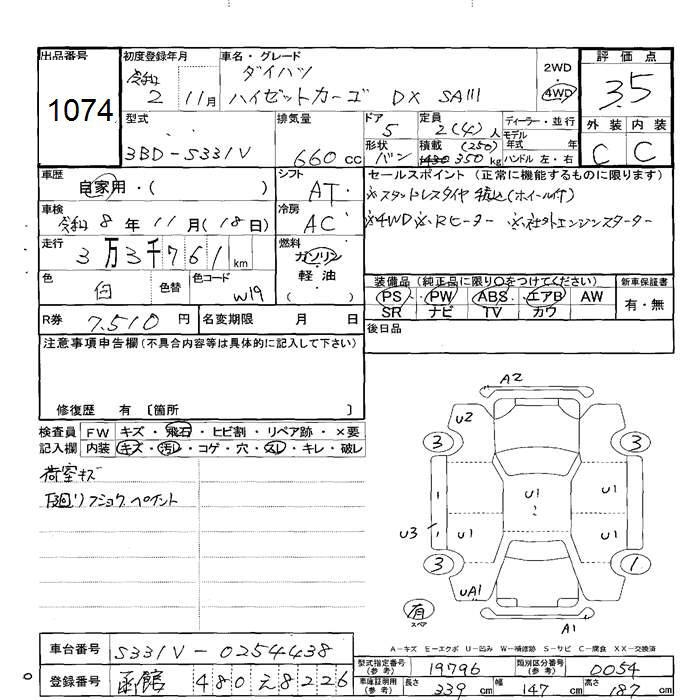 出品番号 1074
初度登録年月 令和 2 11月
車名・グレード ダイハツ ハイゼットカーゴ DX SAIII
2WD 4WD
評価点 3.5
外装 内装
C C
型式 3BD-S331V
排気量 660cc
ドア 5
形状 バン
定員 2(4)人
積載 (250) 350kg
ディーラー・並行
モデル年式 年
ハンドル 左・右
車歴 自家用・( )
シフト AT
車検 令和 8年 11月(18日)
冷房 AC
走行 3万3千761km
燃料 ガソリン・軽油 ( )
色 白 色替
色コード W19
R券 7,510円
名変期限 月 日
セールスポイント(正常に機能するものに限ります)
※スタッドレスタイヤ積込(ホイール付)
※4WD ※Rヒーター ※社外エンジンスターター
装備品(純正品に限り○をつけてください)
PS・PW・ABS・エアB・AW
SR ナビ TV カワ
新車保証書 有・無
後日品
注意事項申告欄(不具合内容等は具体的に記入して下さい)
修復歴 有〔箇所 〕
検査員記入欄
FW キズ・飛石・ヒビ割・リペア跡・×要
内装 キズ・汚レ・コゲ・穴・スレ・キレ・破レ
荷室キズ
下廻りフショク ペイント
A2
U2
3 3
U1 U1
U3 U1 U1
3 1
UA1
有 スペア
A1
A-キズ E-エクボ U-凹み W-補修跡 S-サビ C-腐食 XX-交換済
車台番号 S331V-0254438
登録番号 函館 480え8226
型式指定番号(参考) 19796
類別区分番号(参考) 0054
車庫証明用(参考) 長さ 339cm 幅 147cm 高さ 187cm